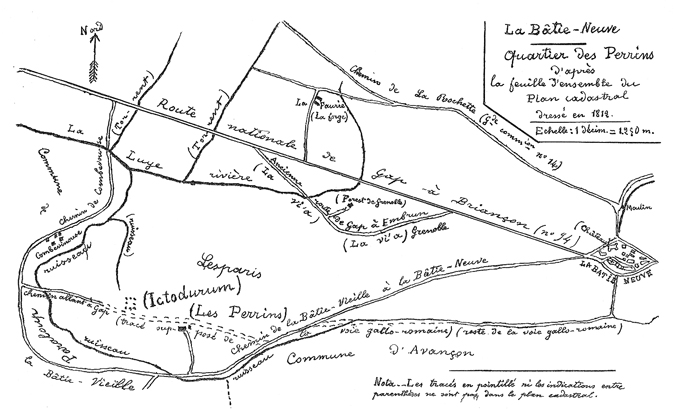 Nord
La Bâtie-Neuve
Quartier des Perrins
d'après
la feuille d'ensemble du
Plan cadastral
dressé en 1812.
Echelle: 1 décim. = 1250 m.
Chemin de La Rochette (Gde commion no 14)
La
Faurie
(La forge)
(Torrent)
(Torrent)
Route nationale de Gap à Briançon (no 94)
La Luye rivière
Commune de
Chemin de Combevinouse
Combevinouse
Ancienne route de Gap à Embrun
(La via)
(Forest de Grenoble)
(La via) Grenoble
Moulin
(Château)
LA BATIE NEUVE
ruisseau
(ruisseau)
Lesparis
(Ictodurum)
(Les Perrins)
chemin allant à Gap
(tracé supposé de la voie gallo-romaine) (reste de la voie gallo-romaine)
Chemin de la Bâtie-Vieille à la Bâtie-Neuve
ruisseau
ruisseau
la Bâtie-Vieille
Commune d'Avançon
Nota.- Les tracés en pointillé ni les indications entre
parenthèses ne sont pas dans le plan cadastral.